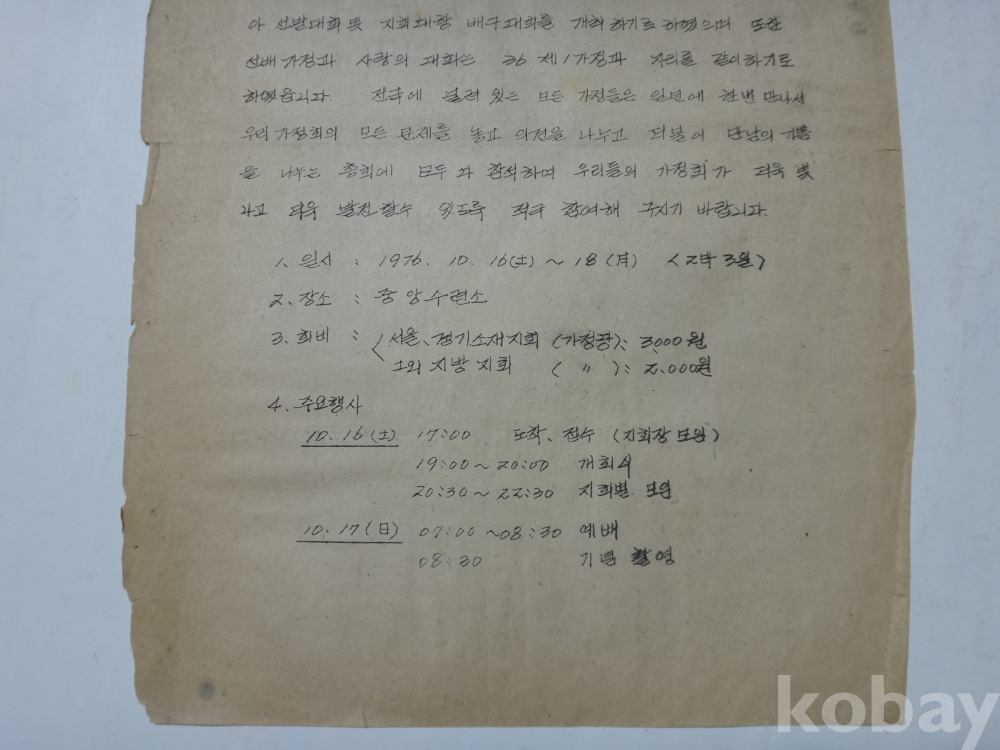 아 선발대회 및 지회대항 배구대회를 개최하기로 하였으며 또한
선배가정과 사랑의 대화는 36 제1가정과 자리를 같이하기로
하였읍니다. 전국에 널려 있는 모든 가정들은 일년에 한번 만나서
우리 가정회의 모든 문제를 놓고 의견을 나누고 더불어 만남의 기쁨
을 나누는 총회에 모두 다 참석하여 우리들의 가정회가 더욱 빛
나고 더욱 발전할수 있도록 적극 참여해 주시기 바랍니다.
1. 일시 : 1976. 10. 16(土) ~ 18(月) <2박 3일>
2. 장소 : 중앙수련소
3. 회비 : 서울, 경기소재지회 (가정당): 3,000원
그외 지방지회 ( 〃 ): 2,000원
4. 주요행사
10. 16(土) 17:00 도착, 접수 (지회장 모임)
19:00~20:00 개회식
20:30~22:30 지회별 모임
10. 17(日) 07:00~08:30 예배
08:30 기념 촬영
kobay